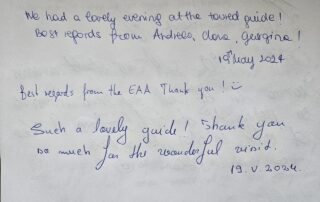 We had a lovely evening at the toured guide!
Best regards from Andreea, Clara, Georgina!
19th May 2024
Best regards from the EAA Thank you! :)
Such a lovely guide! Thank you
so much for the wonderful visit.
19. V. 2024.